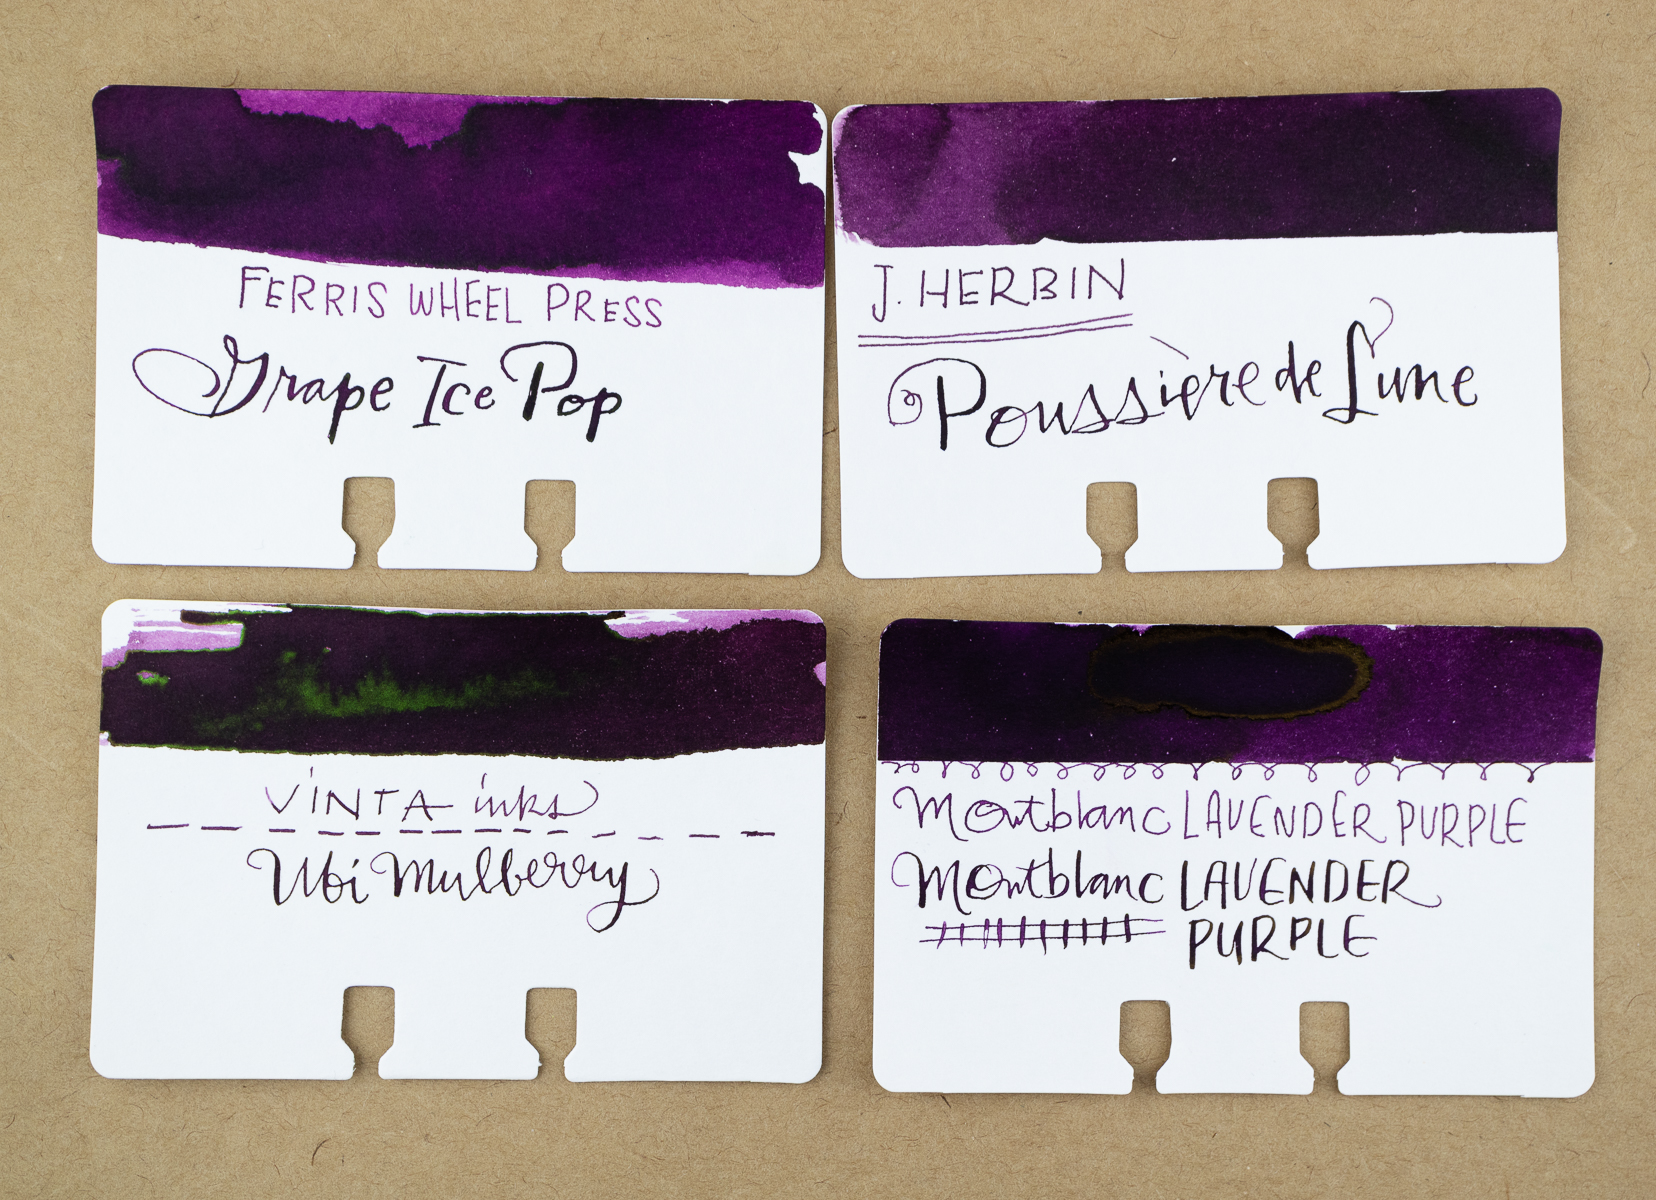 FERRIS WHEEL PRESS
Grape Ice Pop
J. HERBIN
Poussière de Lune
VINTA inks
Ubi Mulberry
Montblanc LAVENDER PURPLE
Montblanc LAVENDER
PURPLE